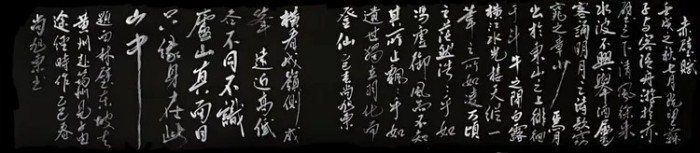 赤壁赋
壬戌之秋七月既望苏
子与客泛舟游于赤
壁之下清风徐来
水波不兴举酒属
客诵明月之诗歌窈
窕之章少焉月
出于东山之上徘徊
于斗牛之间白露
横江水光接天纵一
苇之所如凌万顷
之茫然浩浩乎如
冯虚御风而不知
其所止飘飘乎如
遗世独立羽化而
登仙 乙巳尚旭东
横看成岭侧成
峰远近高低
各不同不识
庐山真面目
只缘身在此
山中
题西林壁东坡去
黄州赴汝州
途径时作乙巳春
尚旭东书